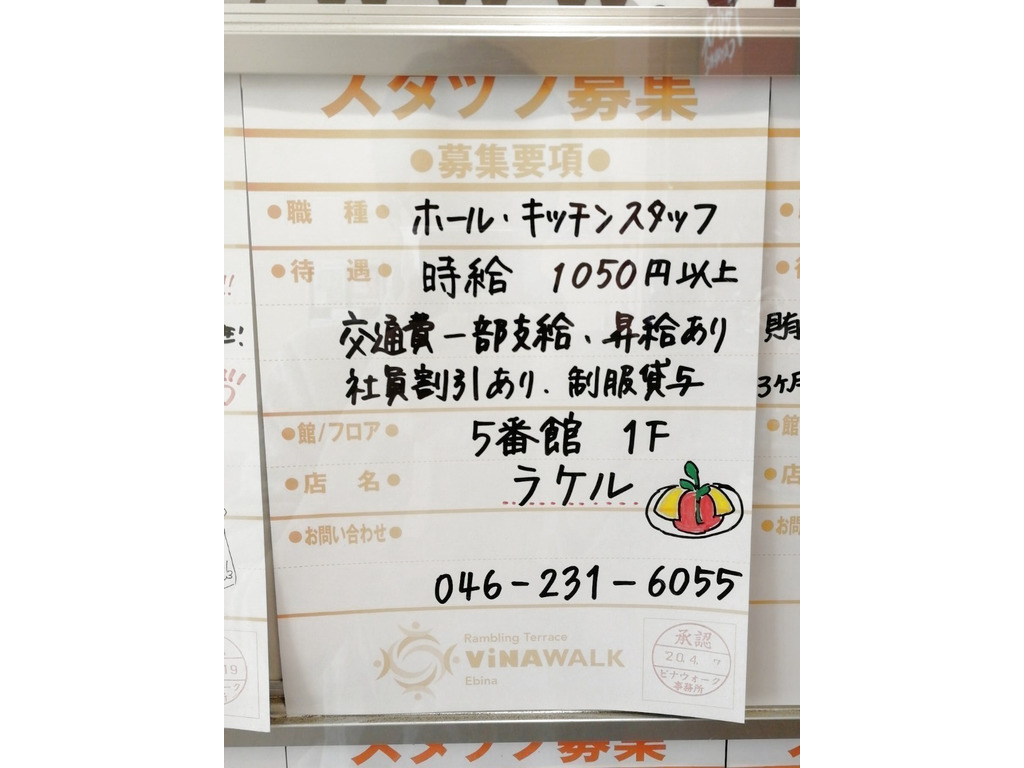 スタッフ募集
●募集要項●
●職 種● ホール・キッチンスタッフ
●待 遇● 時給 1050円以上
交通費一部支給、昇給あり
社員割引あり、制服貸与
●館/フロア● 5番館 1F
●店 名● ラケル
●お問い合わせ●
046-231-6055
Rambling Terrace
ViNAWALK
Ebina
承認
20.4.7
ビナウォーク
事務所
スタッフ募集